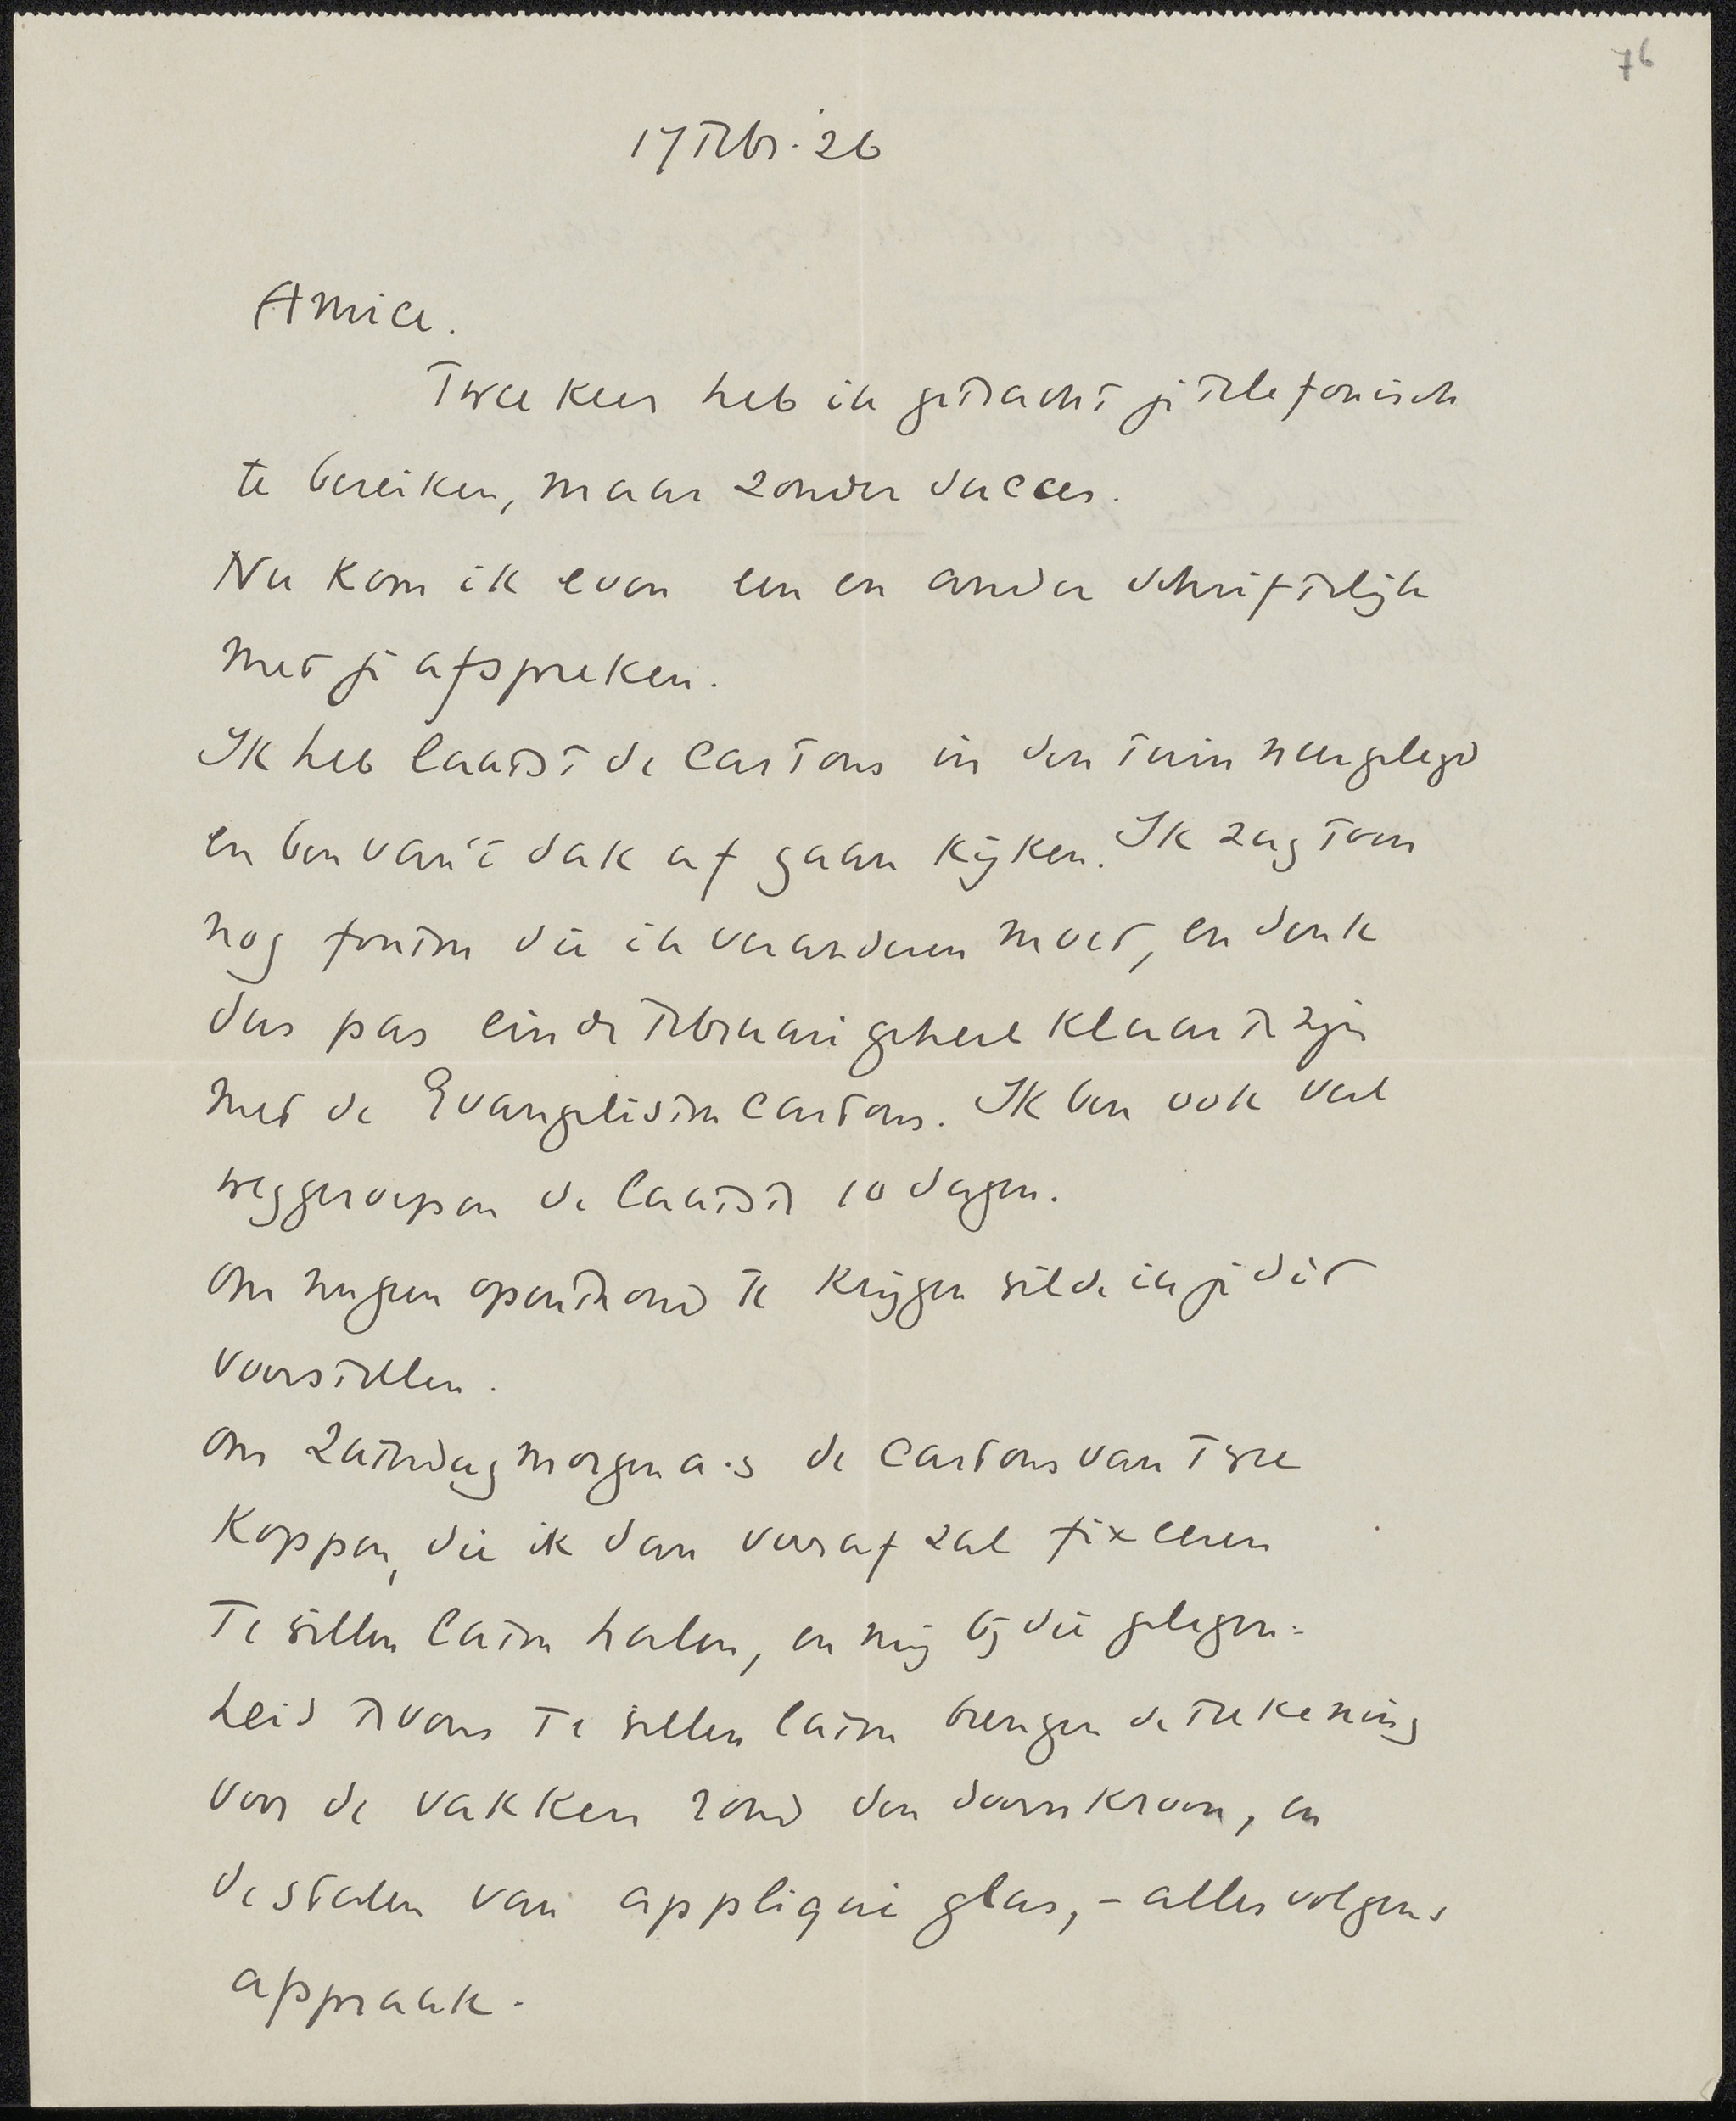 76
17 Febr. '26
Amice.
Twee keer heb ik getracht je telefonisch
te bereiken, maar zonder succes.
Nu kom ik even een en ander schriftelijk
met je afspreken.
Ik heb laatst de cartons in den tuin neergelegd
en ben van 't dak af gaan kijken. Ik zag toen
nog fouten die ik veranderen moet, en denk
dus pas einde Februari geheel klaar te zijn
met de Evangelisten cartons. Ik ben ook veel
weggeroepen de laatste 10 dagen.
Om nu geen oponthoud te krijgen wilde ik je dit
voorstellen.
Om Zaterdag morgen a.s de cartons van twee
Koppen, die ik dan vooraf zal fixeeren
te willen laten halen, en mij bij die gelegen-
heid tevens te willen laten brengen de teekening
voor de vakken rond den doornkroon, en
de stalen van appliqué glas, - alles volgens
afspraak.